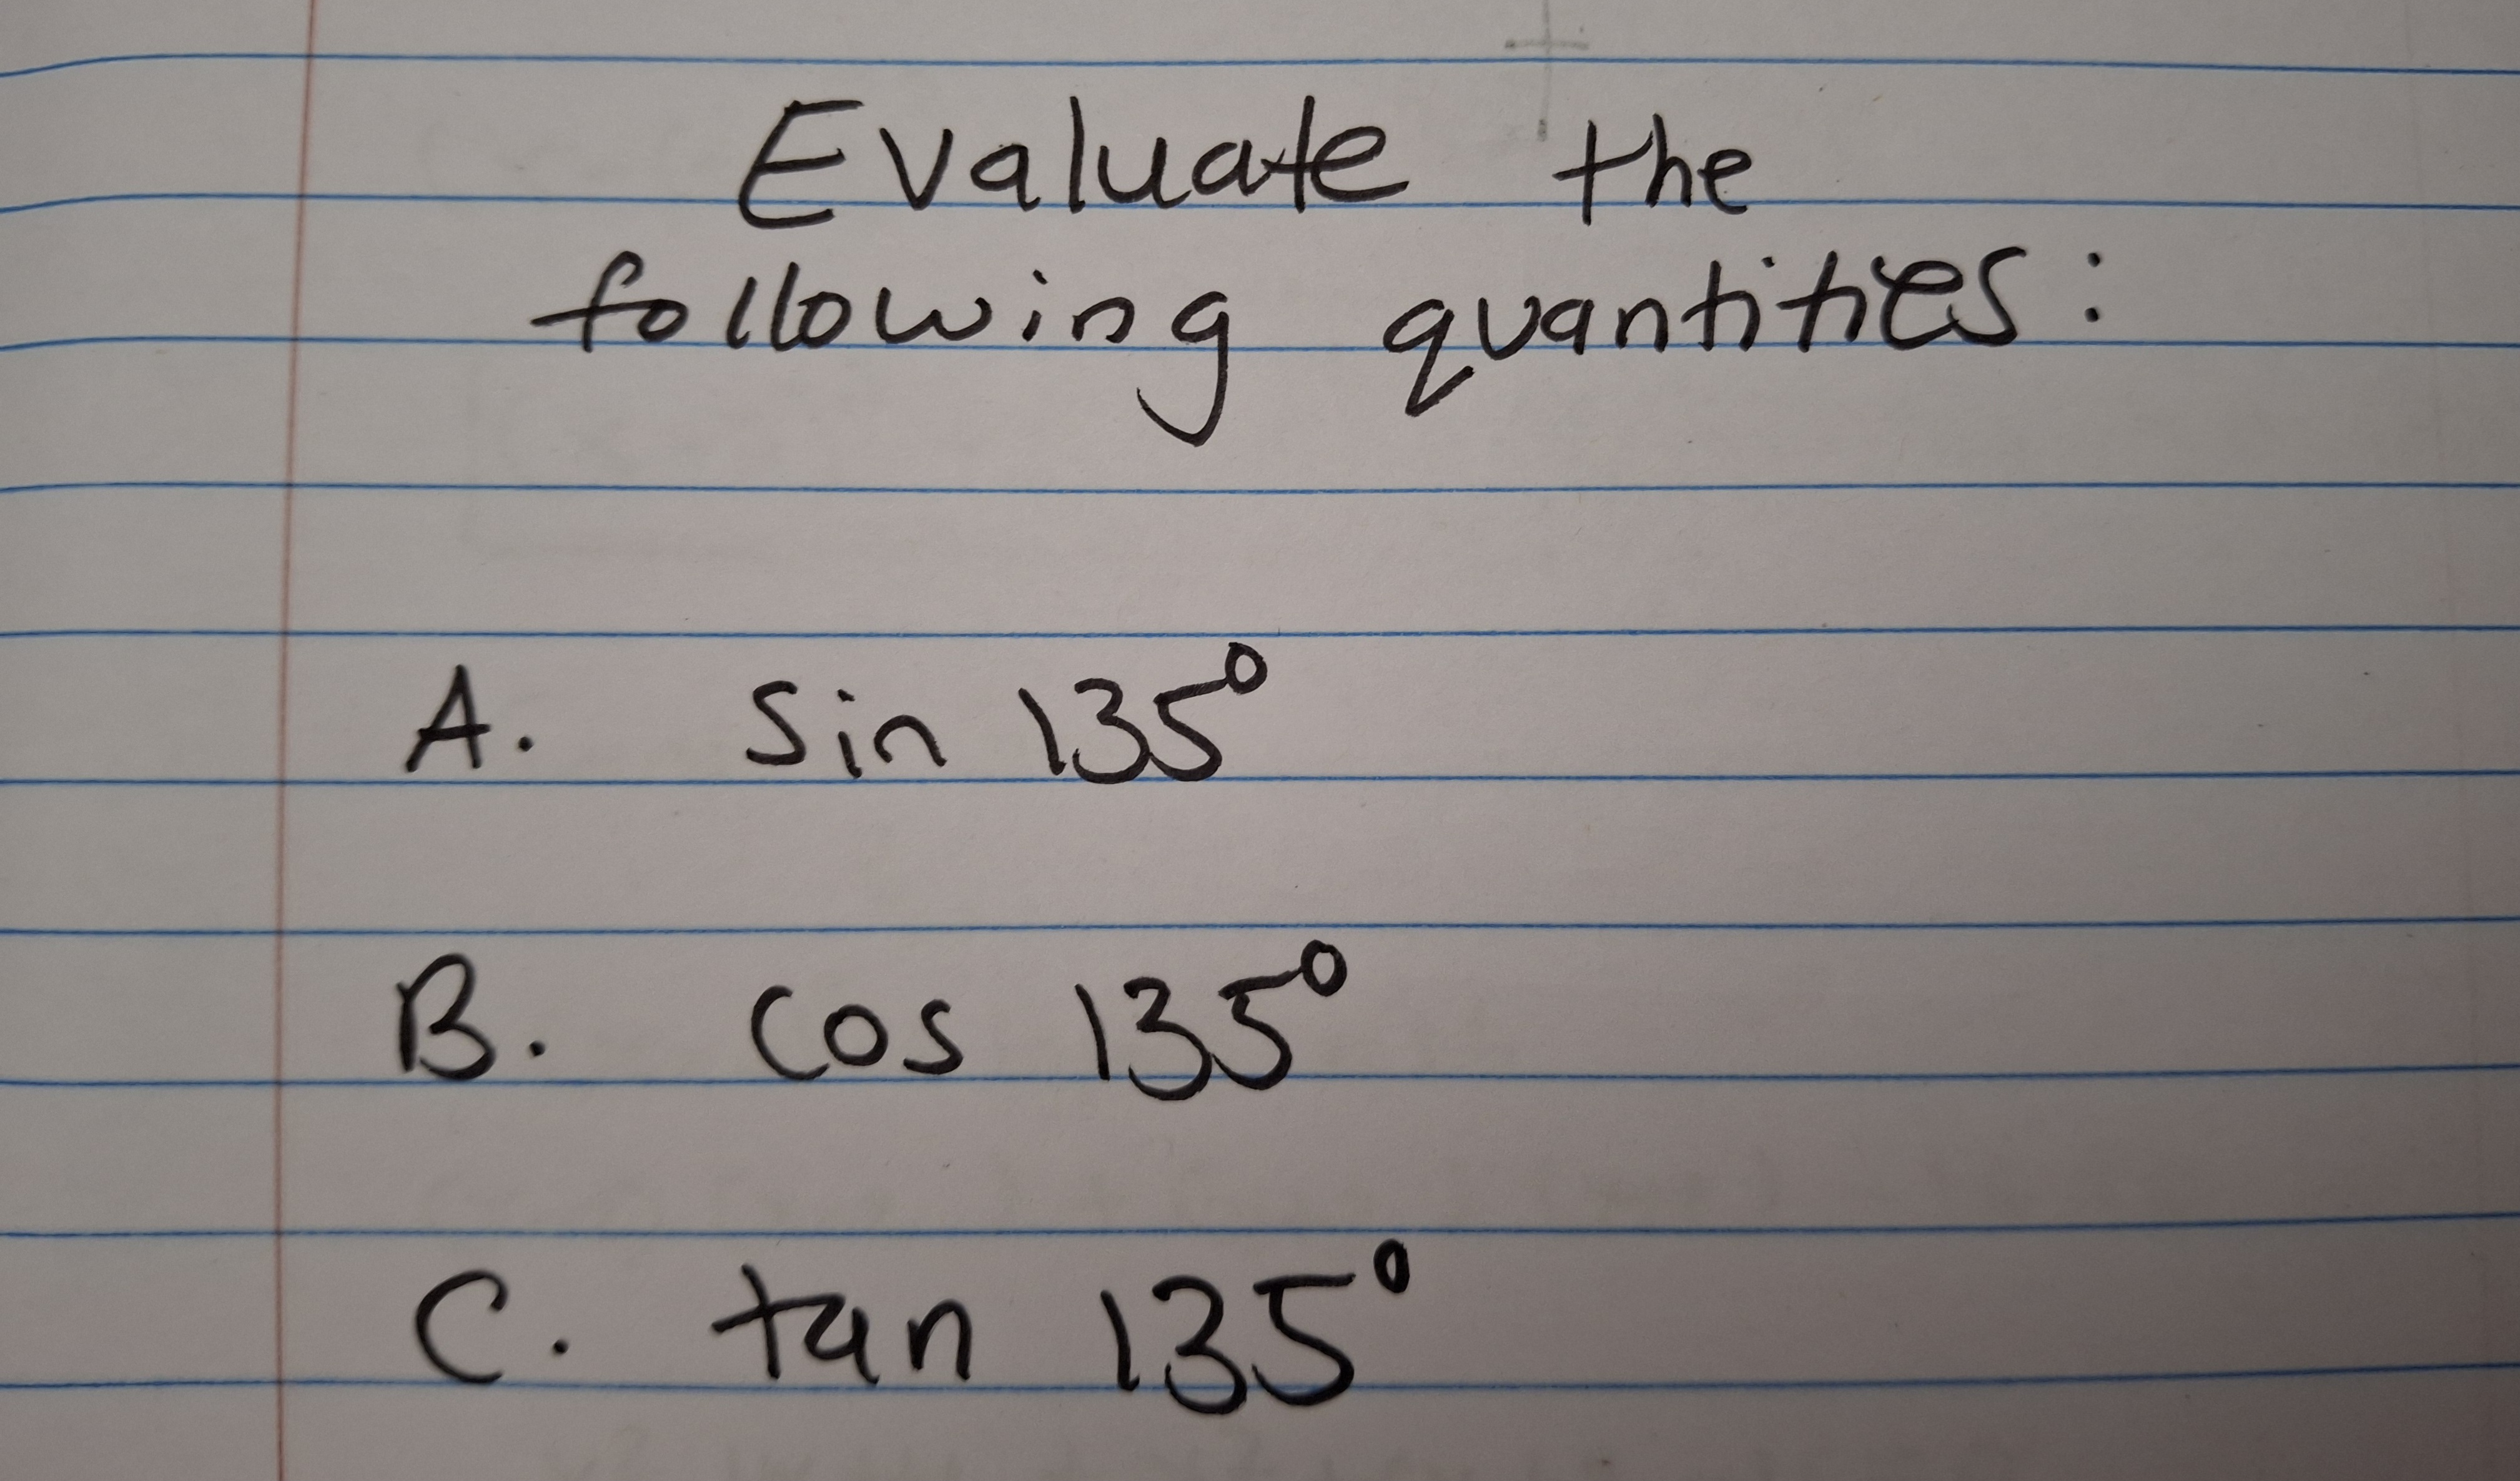 Evaluate the
following quantities:
A. Sin 135°
B. Cos 135°
C. tan 135°